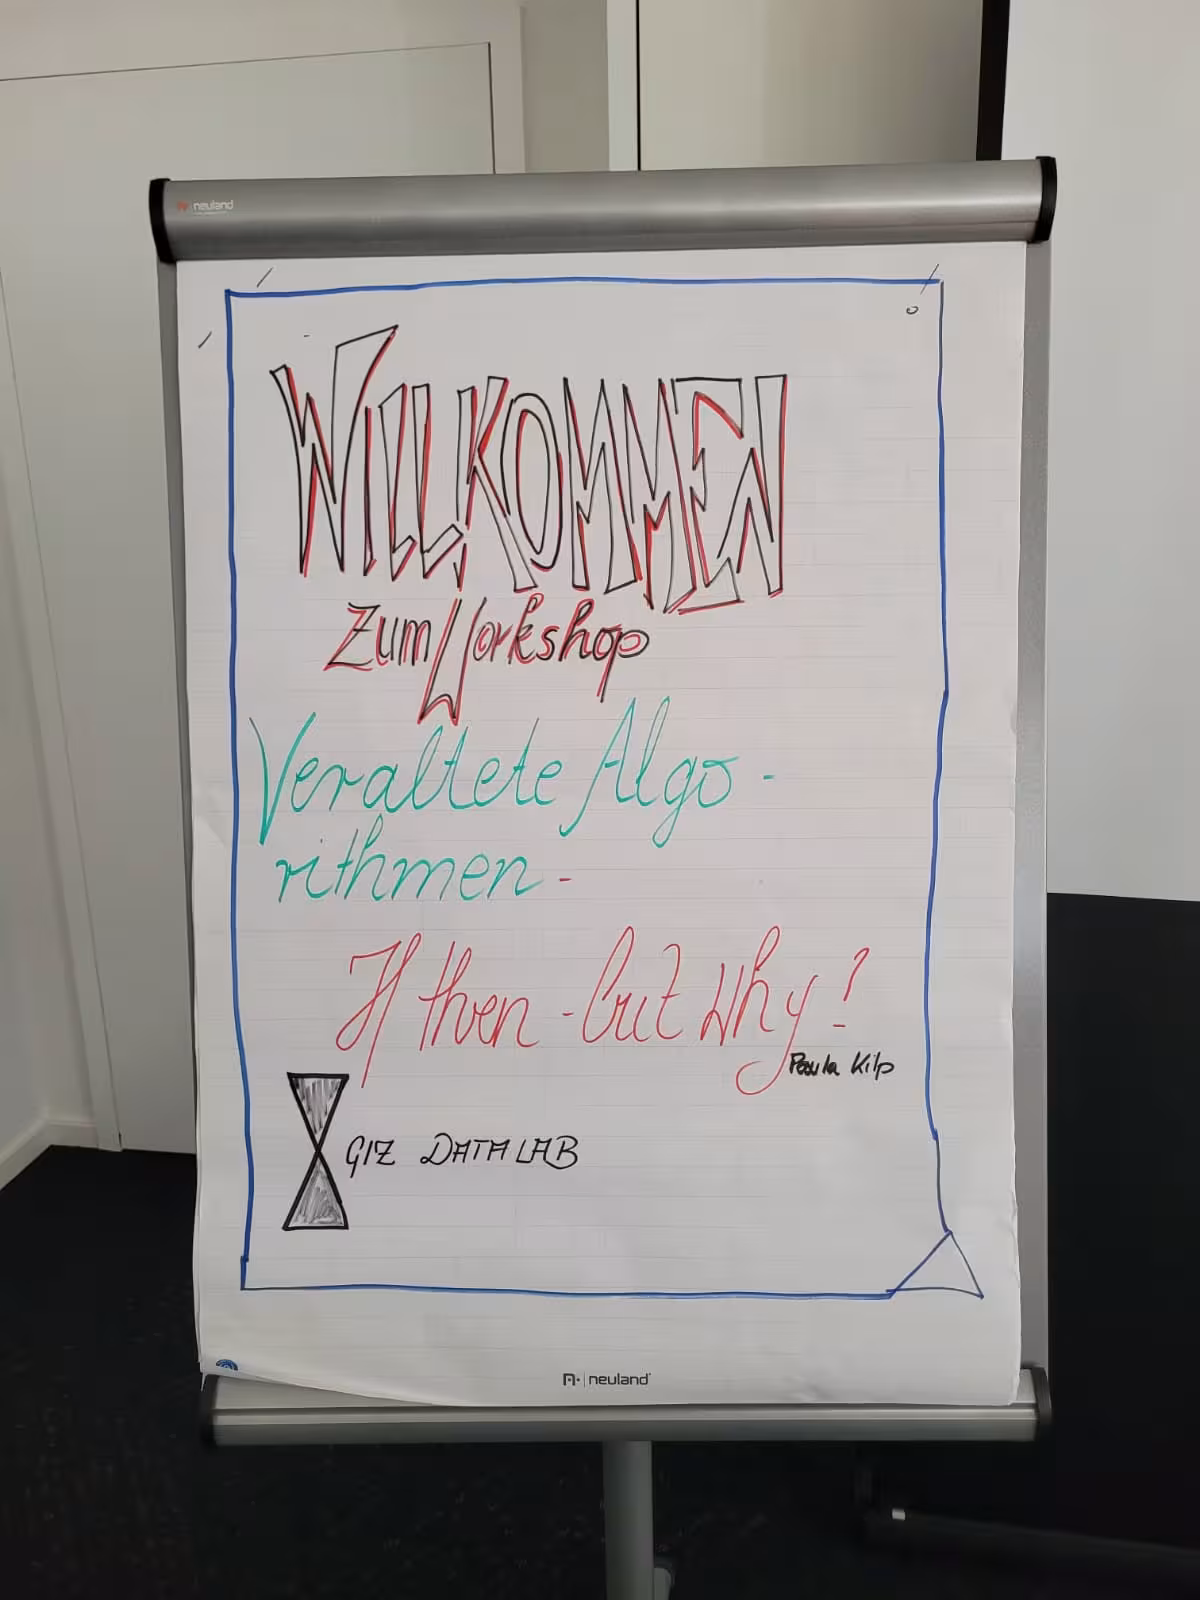 neuland
WILLKOMMEN
Zum Workshop
Veraltete Algo-
rithmen -
If then - but why?
Paula Kilp
GIZ DATA LAB
neuland